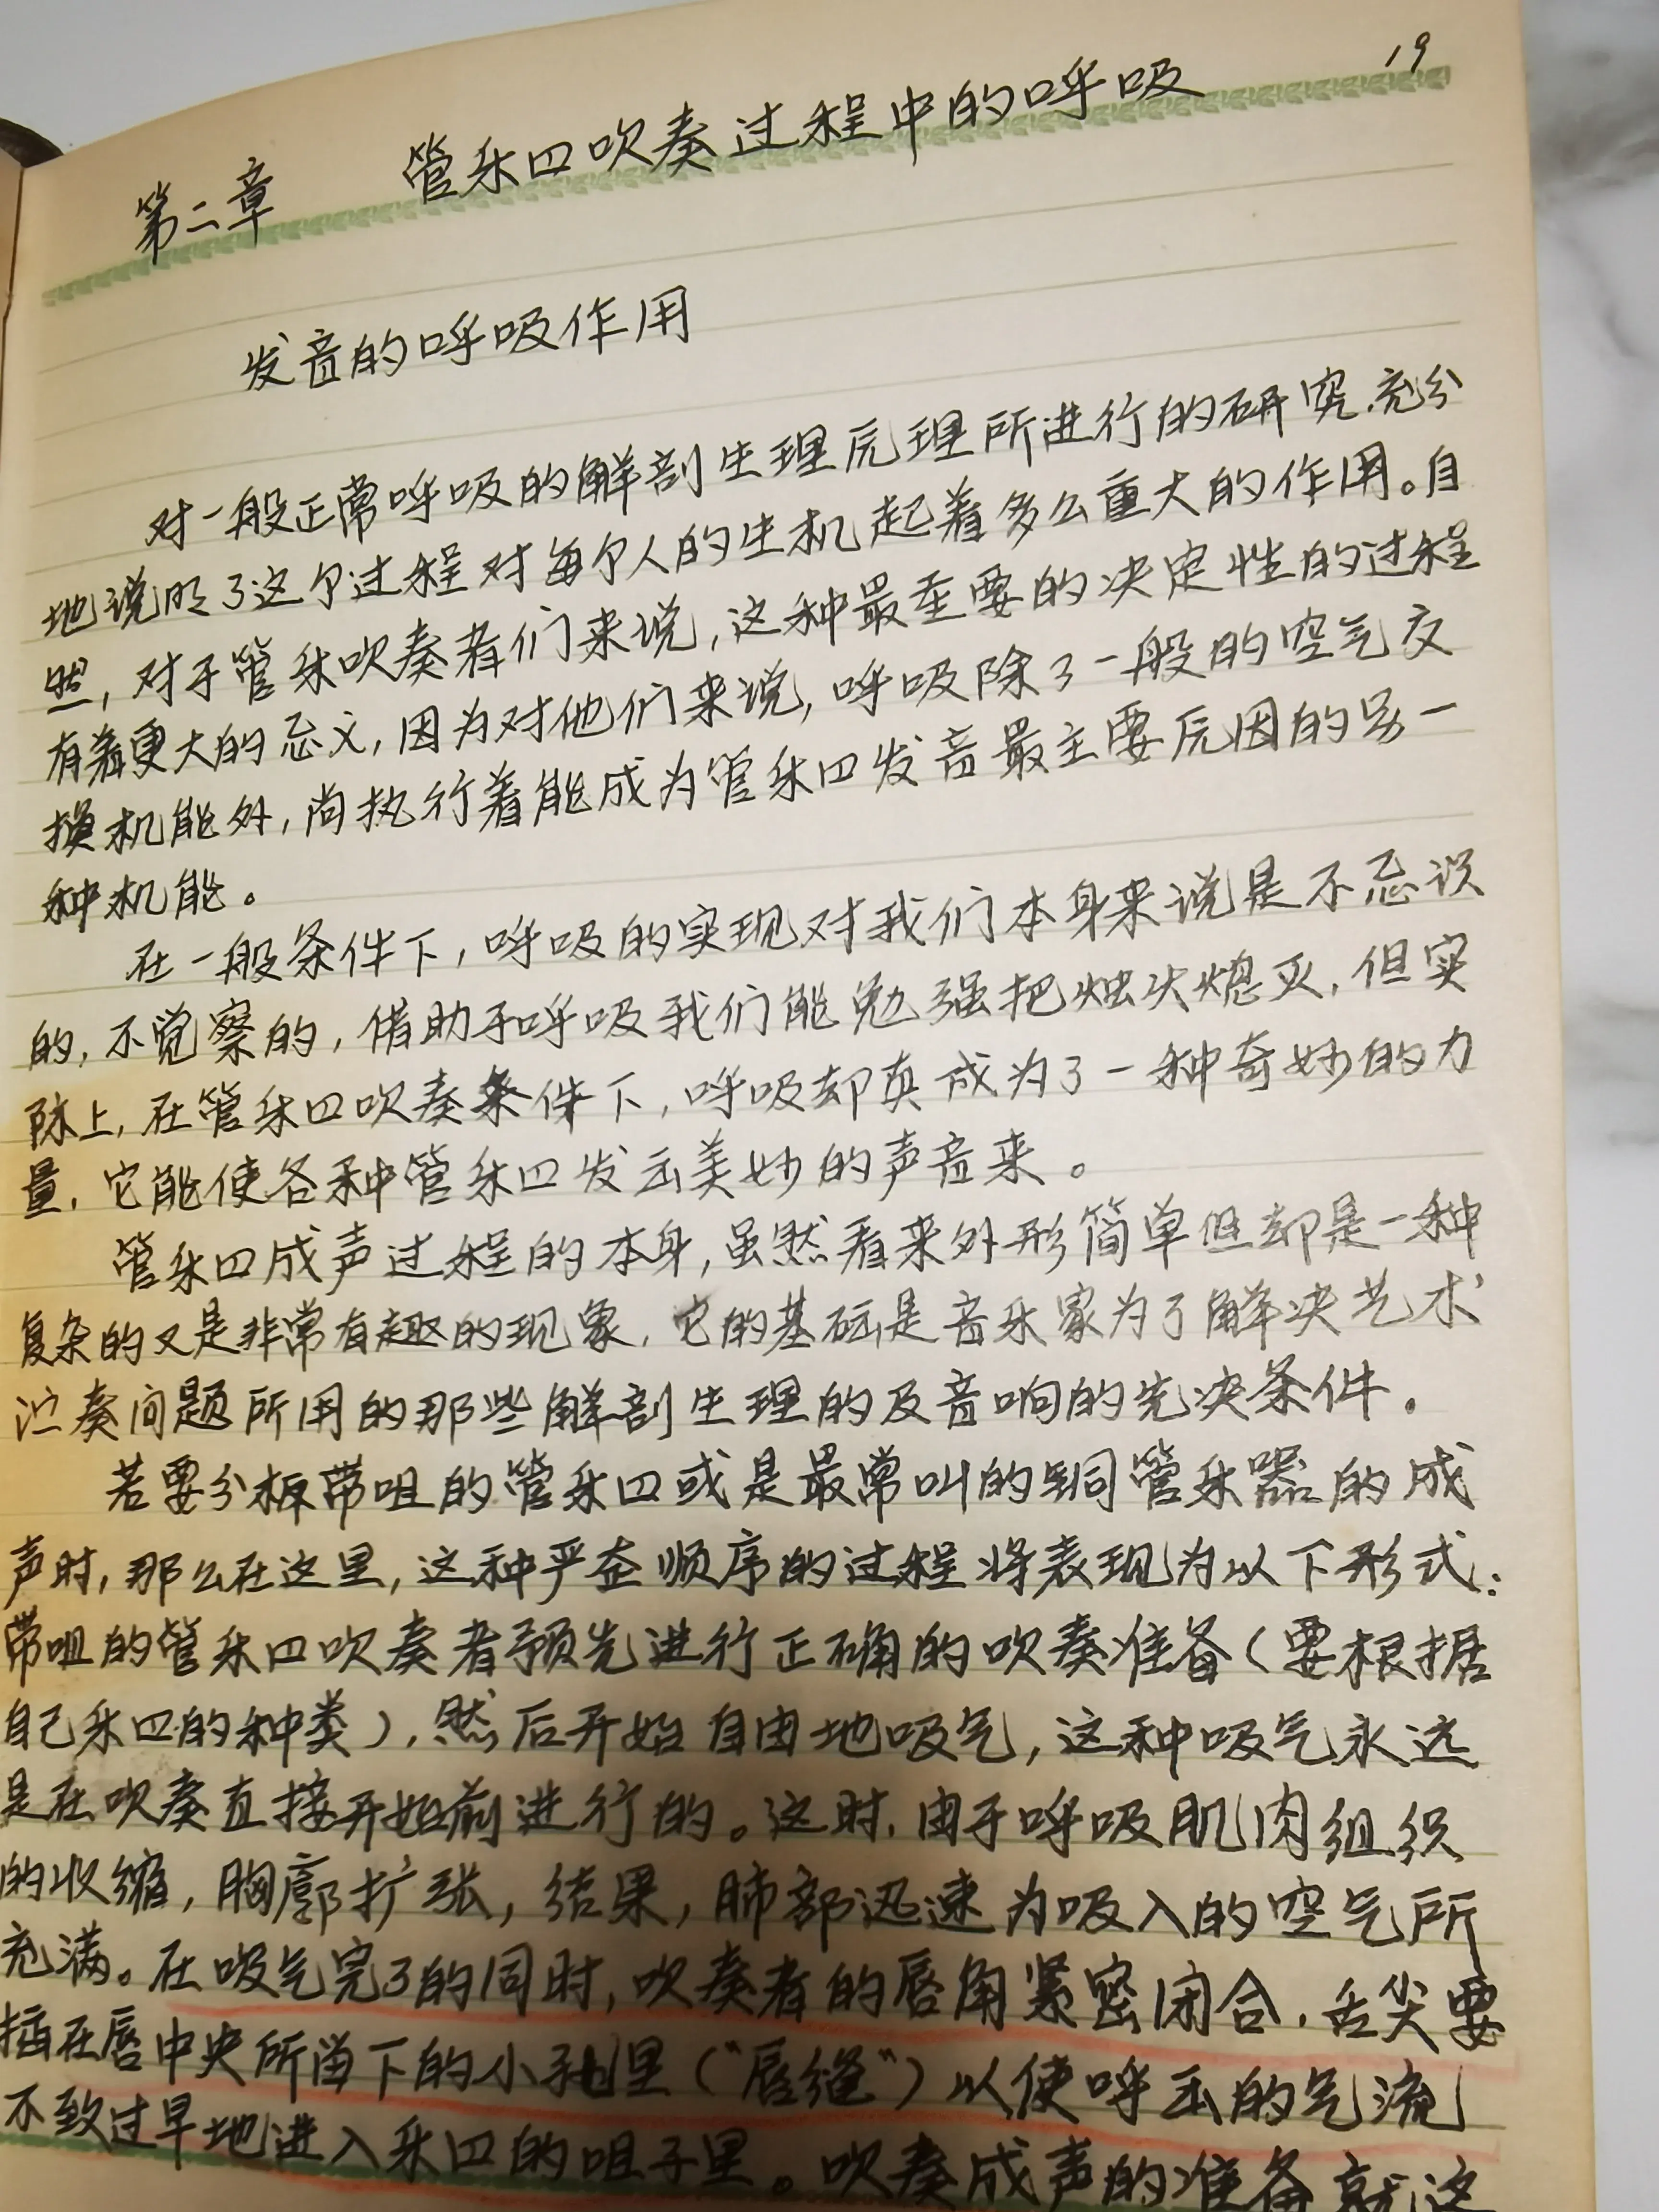 19
第二章 管乐器吹奏过程中的呼吸
发音的呼吸作用
对一般正常呼吸的解剖生理原理所进行的研究,充分
地说明了这个过程对每个人的生机起着多么重大的作用。自
然,对于管乐吹奏者们来说,这种最重要的决定性的过程
有着更大的意义,因为对他们来说,呼吸除了一般的空气交
换机能外,尚执行着能成为管乐器发音最主要原因的另一
种机能。
在一般条件下,呼吸的实现对我们本身来说是不意识
的,不觉察的,借助于呼吸我们能勉强把烛火熄灭,但实
际上,在管乐器吹奏条件下,呼吸却真成为了一种奇妙的力
量,它能使各种管乐器发出美妙的声音来。
管乐器成声过程的本身,虽然看来外形简单但却是一种
复杂的又是非常有趣的现象,它的基础是音乐家为了解决艺术
演奏问题所用的那些解剖生理的及音响的先决条件。
若要分析带咀的管乐器或是最常叫的铜管乐器的成
声时,那么在这里,这种严整顺序的过程将表现为以下形式:
带咀的管乐器吹奏者预先进行正确的吹奏准备(要根据
自己乐器的种类),然后开始自由地吸气,这种吸气永远
是在吹奏直接开始前进行的。这时,由于呼吸肌肉组织
的收缩,胸廓扩张,结果,肺部迅速为吸入的空气所
充满。在吸气完了的同时,吹奏者的唇角紧密闭合,舌尖要
插在唇中央所留下的小孔里("唇缝")以使呼出的气流
不致过早地进入乐器的咀子里。吹奏成声的准备就这